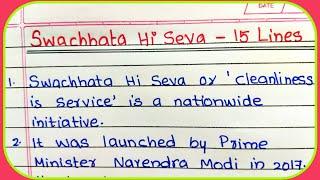 DATE
Swachhata Hi Seva - 15 Lines
1. Swachhata Hi Seva or 'cleanliness
is service' is a nationwide
initiative.
2. It was launched by Prime
Minister Narendra Modi in 2017.